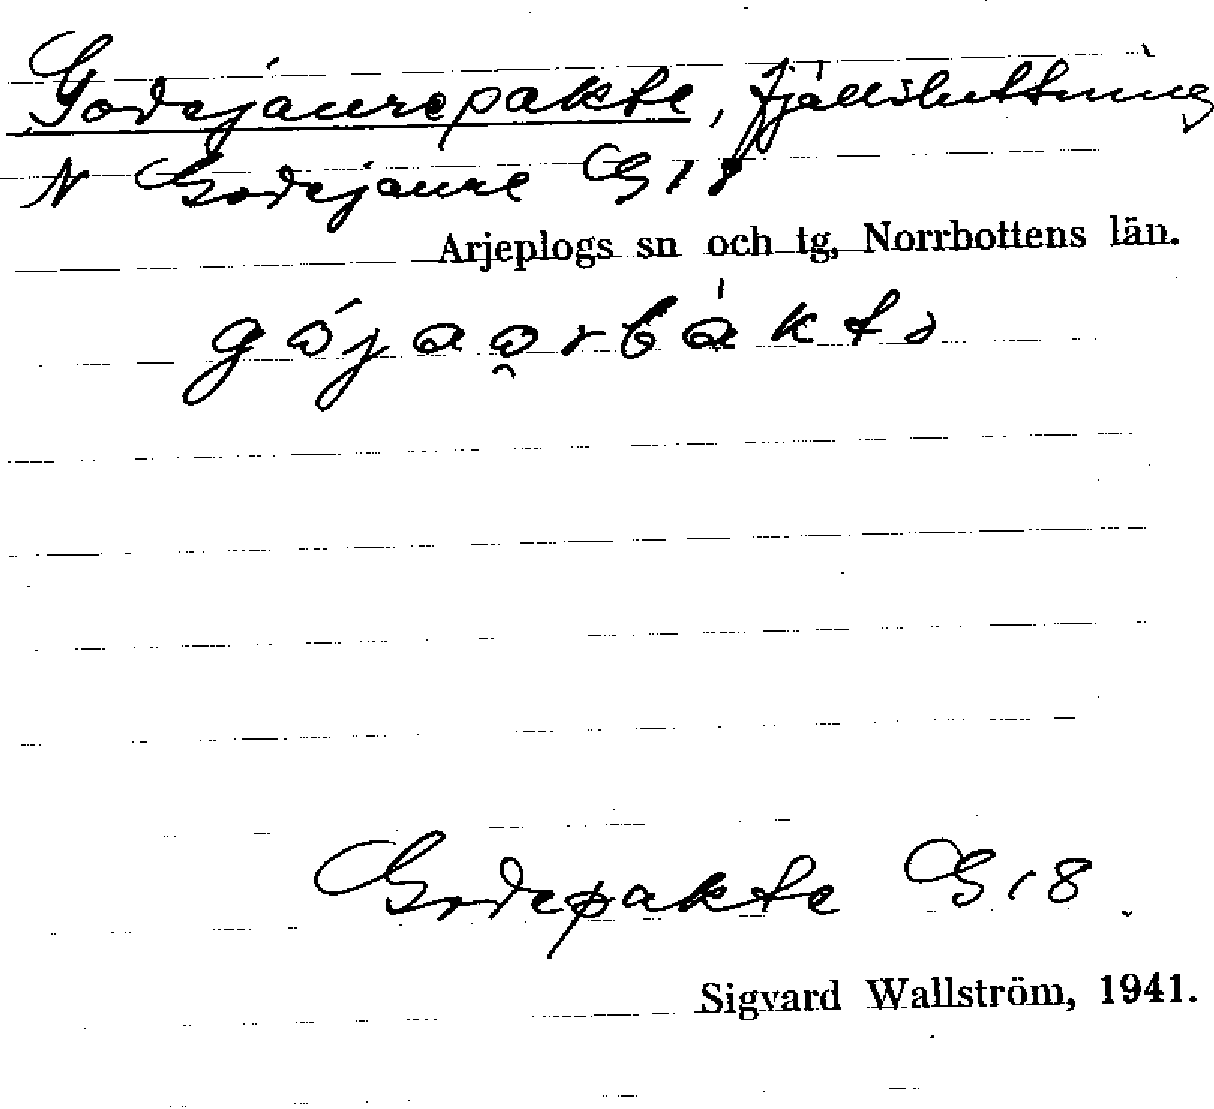 Godejaurepakte, fjällsluttning
N Godejaure G 18
Arjeplogs sn och tg, Norrbottens län.
Godepakte G 18.
Sigvard Wallström, 1941.